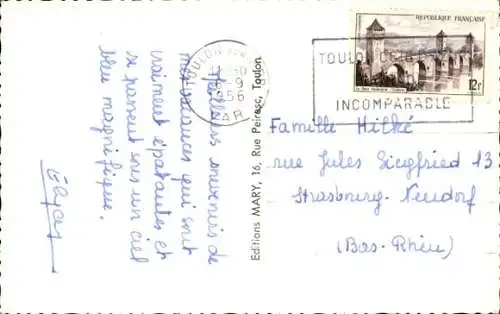 Meilleurs souvenirs de
mes vacances qui sont
vraiment épatantes et
se passent sous un ciel
bleu magnifique.
Editions MARY, 16, Rue Peiresc, Toulon
TOULON
1956
VAR
TOULON
INCOMPARABLE
REPUBLIQUE FRANÇAISE
12F
Famille Hilké
rue Jules Siegfried 13
Strasbourg-Neudorf
(Bas-Rhin)